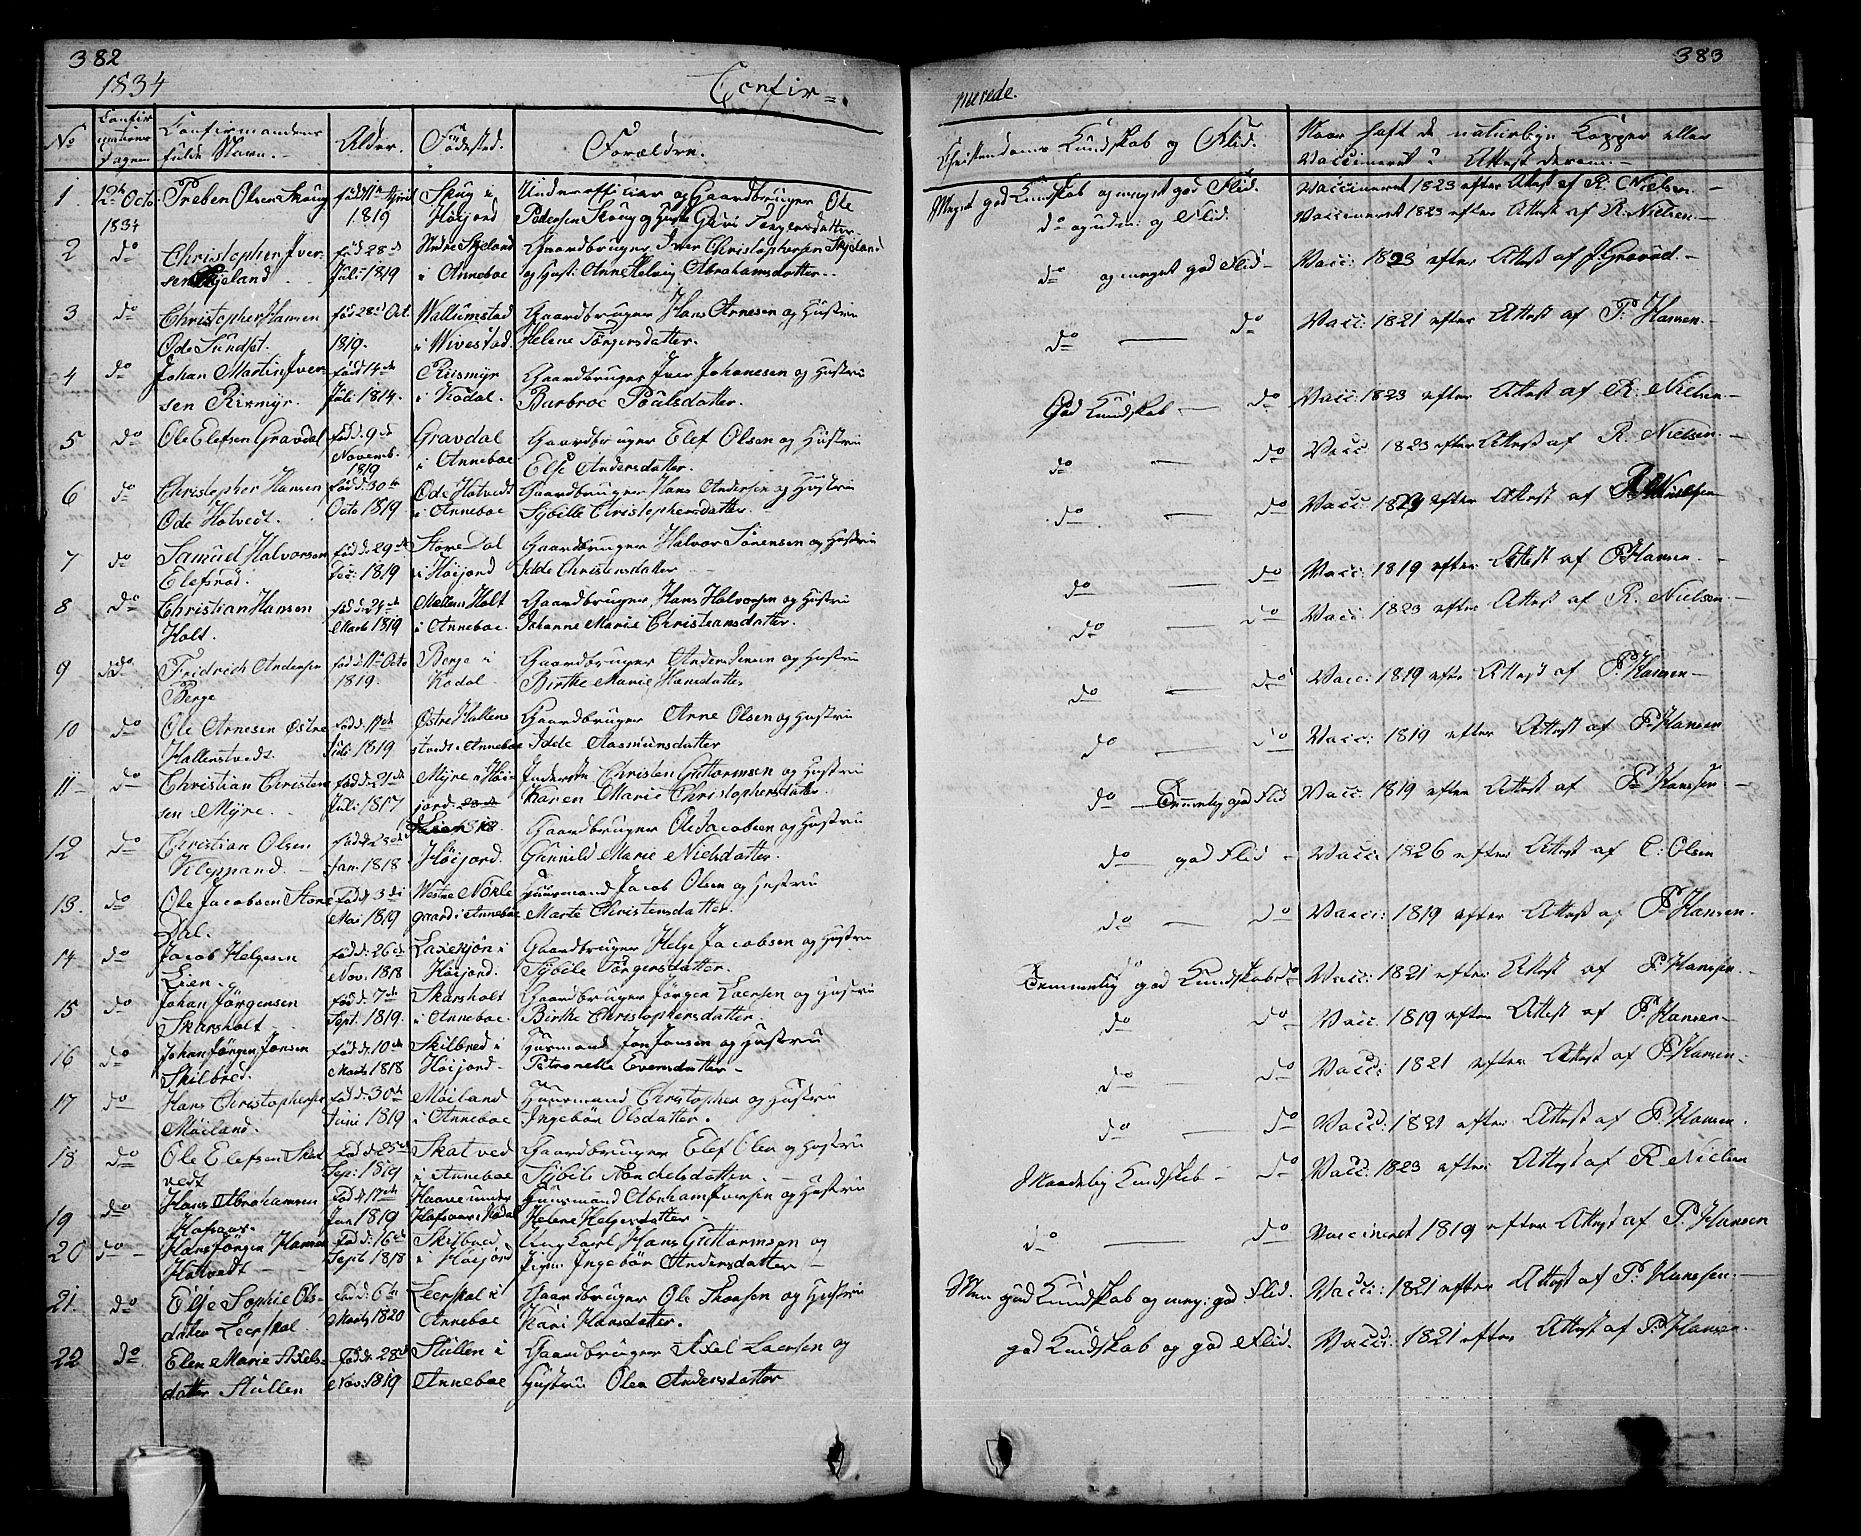 382
1834
Confir-
No
Confir
mations
Dagen
Confirmandens
fulde Navn.
Alder.
Födested.
Forældre.
1 12te Octo. Preben Olsen Skoug föd 11te April Skug i Underofficier og Gaardbruger Ole
1834 1819 Höijord Pedersen Skoug og Hustr Guri Torgersdatter
2 do Christopher Iver- föd 28d Andre Skjeland Gaardbruger Iver Christophersen Skjeland
sen Skjeland Juli 1819 i Anneboe og Hust: Anne Helvig Abrahamsdatter.
3 do Christopher Hansen föd 28d Oct. Wallumstad Gaardbruger Hans Arnesen og Hustru
Öde Sundset. 1819. i Wivestad. Helene Torgersdatter.
4 do Johan Martin Iver- föd 14de Riismyr Gaardbruger Iver Johanesen og Hustru
sen Rismyr. Juli 1814. i Kodal. Barbroe Poulsdatter.
5 do Ole Elefsen Gravdal föd d: 9de Gravdal Gaardbruger Elef Olsen og Hustru
Novemb. 1819 i Anneboe Else Andersdatter.
6 do Christopher Hansen föd d: 30te Öde Hotvedt Gaardbruger Hans Andersen og Hustru
Öde Hotvedt. Octo 1819 i Anneboe Sybille Christophersdatter.
7 do Samuel Halvorsen föd d: 29de Store Dal Gaardbruger Halvor Sörensen og Hustru
Elefsröd. Dec: 1819 i Höijord Idde Christensdatter
8 do Christian Hansen föd d: 24de Mellem Holt Gaardbruger Hans Halvorsen og Hustru
Holt. Marts 1819 i Anneboe. Johanne Marie Christiansdatter.
9 do Fridrich Andersen föd d: 11te Octo Berge i Gaardbruger Anders Jensen og Hustru
Berge 1819. Kodal Birthe Marie Hansdatter
10 do Ole Arnesen Östre föd d: 11de Östre Hallens Gaardbruger Arne Olsen og Hustru
Hallenstvedt. Juli 1819 stvedt i Anneboe Idde Aasmunsdatter
11 do Christian Christen föd d: 21de Myre i Höi Inderste Christen Guttormsen og Hustru
sen Myre. Juli 1817 jord. Karen Marie Christophersdatter.
12 do Christian Olsen föd d: 23de Lien i Gaardbruger Ole Jacobsen og Hustru
Kleppand. Jan. 1818 Höijord. Gunnild Marie Nielsdatter.
13. do Ole Jacobsen Store Föd d: 3de Westre Nörle Huusmand Jacob Olsen og Hustru
Dal. Mai 1819 gaard i Anneboe Marte Christensdatter.
14 do Jacob Helgesen föd d: 26de Laxesjön i Gaardbruger Helge Jacobsen og Hustru
Lien. Nov: 1818 Höijord. Sybile Torgersdatter.
15 do Johan Jörgensen föd d: 7de Skarsholt Gaardbruger Jörgen Laersen og Hustru
Skarsholt Sept. 1819. i Anneboe. Birthe Christophersdatter.
16 do Johan Jörgen Jonsen föd d: 10de Skilbred i Huusmand Jon Jonsen og Hustru
Skilbred. Marts 1818 Höijord. Petronelle Evensdatter
17 do Hans Christophersen föd d: 30te Möiland Huusmand Christopher og Hustru
Möiland. Juni 1819 i Anneboe Ingebör Olsdatter.
18 do Ole Elefsen Skat föd d: 25de Skatved Gaardbruger Elef Olsen og Hustru
vedt Sep: 1819 i Anneboe Sybile datter.
19 do Hans Abrahamsen Föd d: 17de Haave under Huusmand Abraham Iversen og Hustru
Hafsaas. Jan 1819 Hafsaas i Kodal Helene Helgesdatter
20 do Hans Jörgen Hansen föd d: 16de Skilbred Ungkarl Hans Guttormsen og
Hottvedt Sept 1818 i Höijord Pigen Ingebör Andersdatter
21. do Else Sophie Ols- Föd d: 6te Leerskal i Gaardbruger Ole Thorsen og Hustru
datter Leerskal Marts 1820 Anneboe Kari Hansdatter.
22 do Elen Marie Axels- Föd d: 28de Stullen i Gaardbruger Axel Laersen og
datter Stullen Nov: 1819 Anneboe Hustru Olea Andersdatter
383
merede.
Christendoms Kundskab og Flid.
Naar haft de naturlige Kopper eller
Vaccineret i Attest derom.
Meget god Kundskab og meget god Flid. Vaccineret 1823 efter Attest af R. Nielsen
do og Flid. Vaccineret 1823 efter Attest af R. Nielsen
do og meget god Flid Vacc: 1823 efter Attest af J. Gravdal.
do do Vacc: 1821 efter Attest af P. Hansen.
God Kundskab do Vacc: 1823 efter Attest af R. Nielsen
do do Vacc 1823 efter Attest af R. Nielsen.
do do Vacc: 1823 efter Attest af R. Nielsen
do do Vacc: 1819 efter Attest af P. Hansen
do do Vacc: 1823 efter Attest af R. Nielsen.
do do Vacc: 1819 efter Attest af P. Hansen
do do Vacc: 1819 efter Attest af P. Hansen
do Temmelig god Flid Vacc: 1819 efter Attest af P. Hanssen.
do god Flid Vacc: 1826 efter Attest af C: Olsen
do do Vacc: 1819 efter Attest af P. Hansen.
Temmelig god Kundskab do Vacc: 1821 efter Attest af P. Hanssen.
do do Vacc. 1819 efter Attest af P. Hansen
do do Vacc: 1821 efter Attest af P. Hansen
do do Vacc: 1821 efter Attest af P. Hansen.
Maadelig Kundskab do Vacc: 1823 efter Attest af R Nielsen
do do Vaccineret 1819 efter Attest af P. Hansen
Meg god Kundskab og meg: god Flid. Vacc: 1821 efter Attest af P. Hanssen.
god Kundskab og god Flid. Vacc: 1821 efter Attest af P. Hansen.